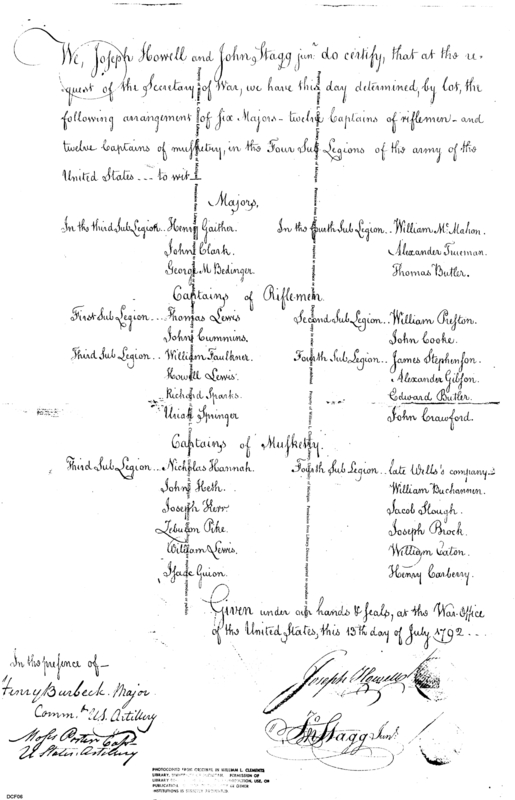 We, Joseph Howell and John Stagg junr. do certify, that at the re-
quest of the Secretary of War, we have this day determined, by lot, the
following arrangement of six Majors - twelve Captains of riflemen - and
twelve Captains of musketry, in the Four Sub Legions of the army of the
United States... to wit
Majors,
In the third Sub Legion.. Henry Gaither.
John Clark.
George M Bedinger.
In the fourth Sub Legion.. William Mc.Mahon.
Alexander Trueman.
Thomas Butler.
Captains of Riflemen
First Sub Legion... Thomas Lewis
John Cummins.
Second Sub Legion.. William Preston.
John Cooke.
Third Sub Legion... William Faulkner.
Howell Lewis.
Richard Sparks.
Uriah Springer
Fourth Sub Legion.. James Stephenson.
Alexander Gibson.
Edward Butler.
John Crawford.
Captains of Musketry.
Third Sub Legion... Nicholas Hannah.
John Heth.
Joseph Kerr
Zebulon Pike.
William Lewis.
Isaac Guion.
Fourth Sub Legion.. late Wells's company
William Buchannen.
Jacob Slough.
Joseph Brock.
William Eaton.
Henry Carberry.
Given under our hands & seals, at the War-Office
of the United States, this 13th day of July 1792...
In the presence of -
Henry Burbeck. Major
Commt. U.S. Artillery
Moses Porter Capt.
U States Artillery
Joseph Howell
Jno Stagg Junr.
PHOTOCOPIED FROM ORIGINAL IN WILLIAM L. CLEMENTS
LIBRARY, PERMISSION OF
LIBRARY USE, OR
PUBLICATION OR OTHER
INSTITUTIONS IS STRICTLY PROHIBITED
DCF06